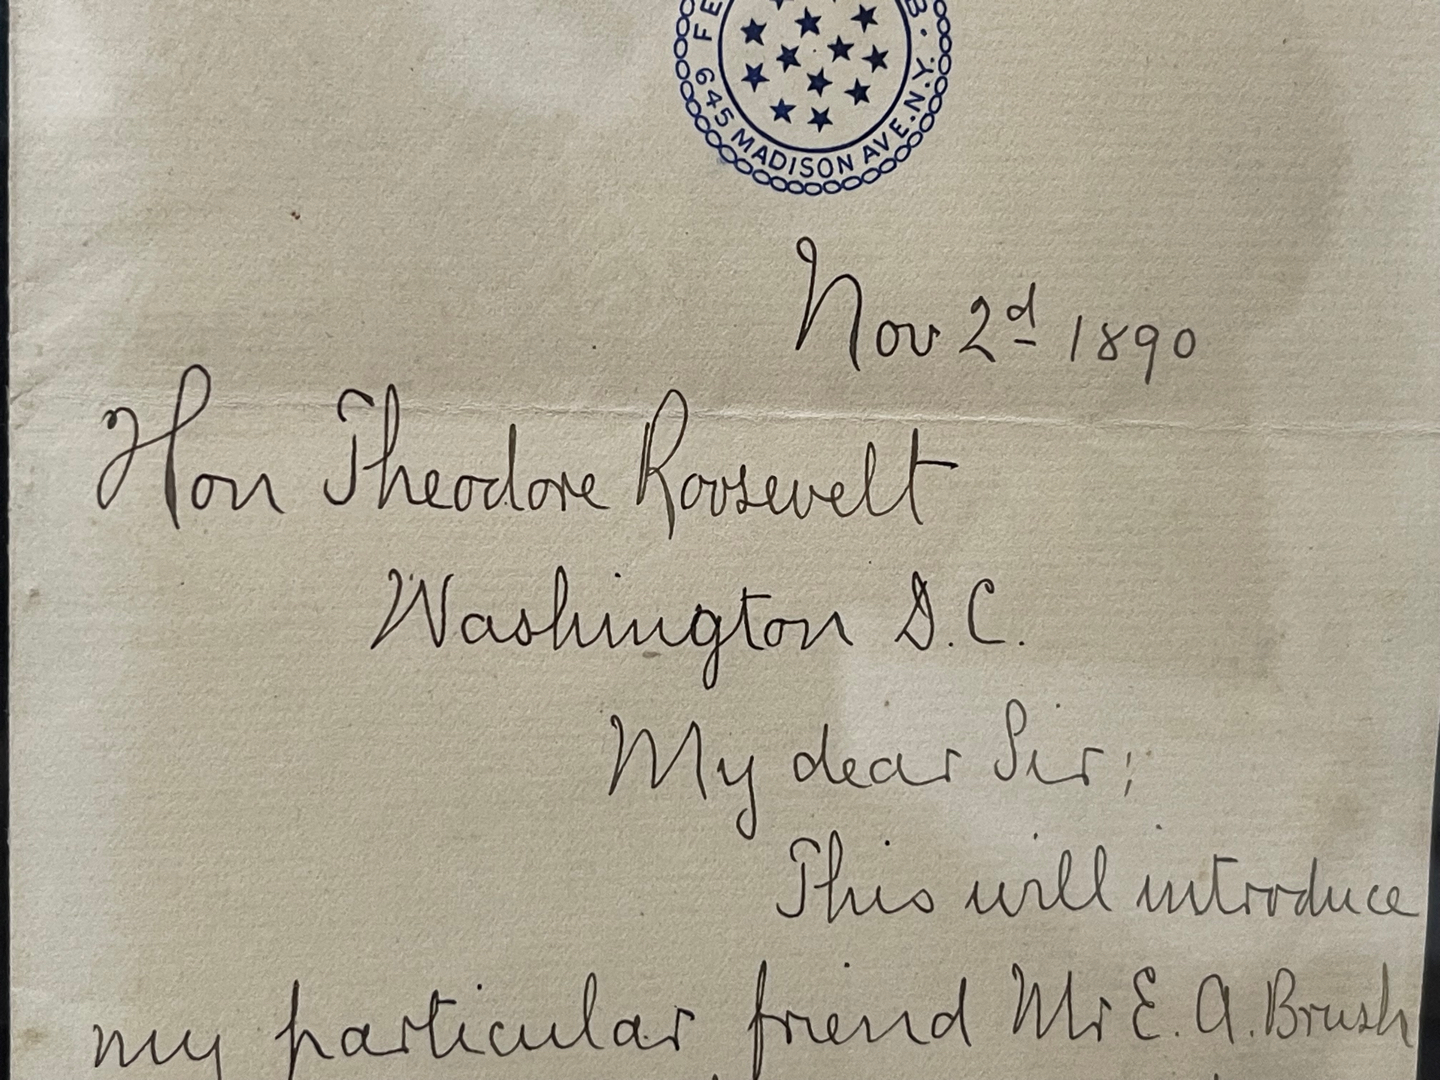 FE B.
645 MADISON AVE. N.Y.
Nov 2d 1890
Hon Theodore Roosevelt
Washington D.C.
My dear Sir;
This will introduce
my particular friend Mr E. A. Brush